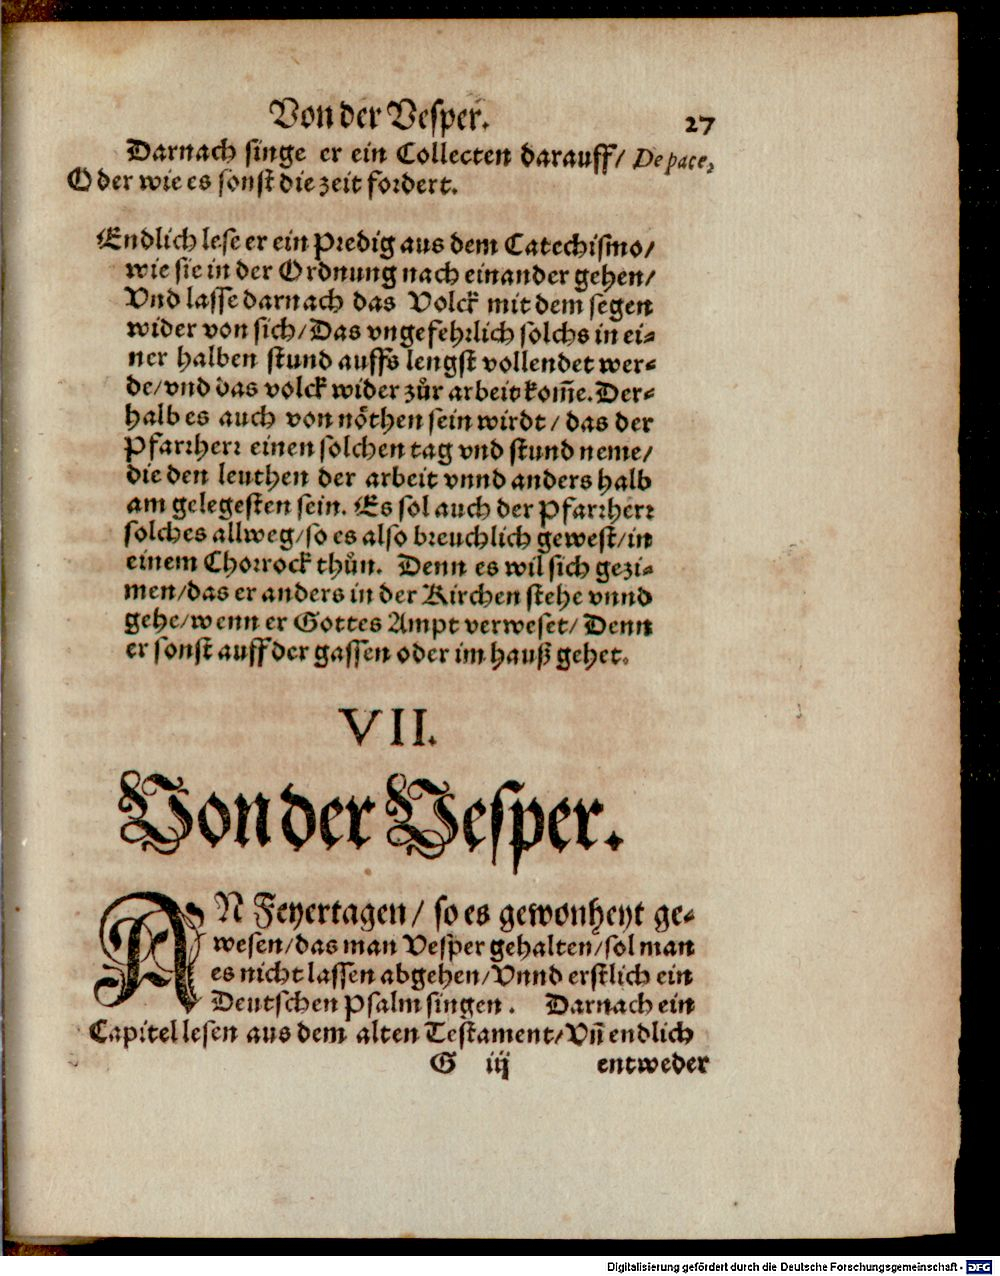 Von der Vesper. 27
Darnach singe er ein Collecten darauff/ De pace,
Oder wie es sonst die zeit fordert.
Endlich lese er ein Predig aus dem Catechismo/
wie sie in der Ordnung nach einander gehen/
Vnd lasse darnach das Volck mit dem segen
wider von sich/Das vngefehrlich solchs in ei-
ner halben stund auffs lengst vollendet wer-
de/vnd das volck wider zůr arbeit kom̄e. Der-
halb es auch von nöthen sein wirdt/ das der
Pfarrherr einen solchen tag vnd stund neme/
die den leuthen der arbeit vnnd anders halb
am gelegesten sein. Es sol auch der Pfarrherr
solches allweg/so es also breuchlich gewest/in
einem Chorrock thůn. Denn es wil sich gezi-
men/das er anders in der Kirchen stehe vnnd
gehe/wenn er Gottes Ampt verweset/ Denn
er sonst auff der gassen oder im hauß gehet.
VII.
Von der Vesper.
AN Feyertagen/ so es gewonheyt ge-
wesen/das man Vesper gehalten/sol man
es nicht lassen abgehen/Vnnd erstlich ein
Deutschen Psalm singen. Darnach ein
Capitel lesen aus dem alten Testament/Vn̄ endlich
G iij entweder
Digitalisierung gefördert durch die Deutsche Forschungsgemeinschaft - DFG